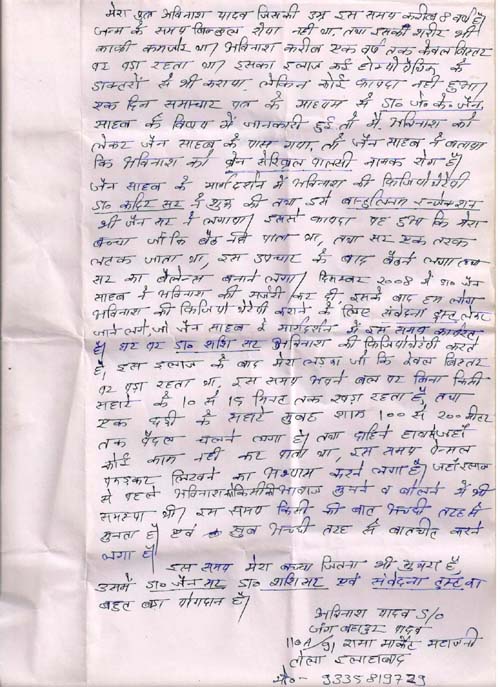 मेरा पुत्र अविनाश यादव जिसकी उम्र इस समय करीब 8 वर्ष है।
जन्म के समय बिल्कुल रोया नहीं था, तथा इसका शरीर भी
काफी कमजोर था। अविनाश करीब एक वर्ष तक केवल बिस्तर
पर पड़ा रहता था। इसका इलाज कई होम्योपैथिक के
डाक्टरों से भी कराया, लेकिन कोई फायदा नहीं हुआ।
एक दिन समाचार पत्र के माध्यम से डा० जे० के० जैन
साहब के विषय में जानकारी हुई तो मैं अविनाश को
लेकर जैन साहब के पास गया, तो जैन साहब ने बताया
कि अविनाश को ब्रेन सेरिब्रल पालसी नामक रोग है।
जैन साहब के मार्गदर्शन में अविनाश की फिजियोथैरेपी
डा० कादिर सर ने शुरू की तथा इसे इन्जेक्शन
भी जैन सर ने लगाया। इससे फायदा यह हुआ कि मेरा
बच्चा जो कि बैठ नहीं पाता था, तथा सर एक तरफ
लटक जाता था, इस उपचार के बाद बैठने लगा तथा
सर का बैलेन्स बनाने लगा। दिसम्बर 2008 में डा० जैन
साहब ने अविनाश की सर्जरी कर दी, इसके बाद हम लोग
अविनाश की फिजियो थैरेपी कराने के लिए संवेदना ट्रस्ट लेकर
जाने लगे, जो जैन साहब के मार्गदर्शन में इस समय कार्यरत
है। घर पर डा० शशि सर अविनाश की फिजियोथैरेपी करते
हैं, इस इलाज के बाद मेरा लड़का जो कि केवल बिस्तर
पर पड़ा रहता था, इस समय अपने बल पर बिना किसी
सहारे के 10 से 15 मिनट तक खड़ा रहता है तथा
एक छड़ी के सहारे सुबह शाम 100 से 200 मीटर
तक पैदल चलने लगा है। तथा दाहिने हाथ से जहाँ
कोई काम नहीं कर पाता था, इस समय पेन्सिल
पकड़कर लिखने का अभ्यास करने लगा है। जहाँ इलाज
से पहले अविनाश को किसी की आवाज सुनने व बोलने में भी
समस्या थी। इस समय किसी की बात अच्छी तरह से
सुनता है। एवं खुब अच्छी तरह से बातचीत करने
लगा है।
इस समय मेरा बच्चा जितना भी सुधरा है,
उसमें डा० जैन सर डा० शशि सर एवं संवेदना ट्रस्ट का
बहुत बड़ा योगदान है।
अविनाश यादव S/o
जंग बहादुर यादव
110A/91 रामा मार्केट महाजनी
टोला इलाहाबाद
मो० - 9335819729